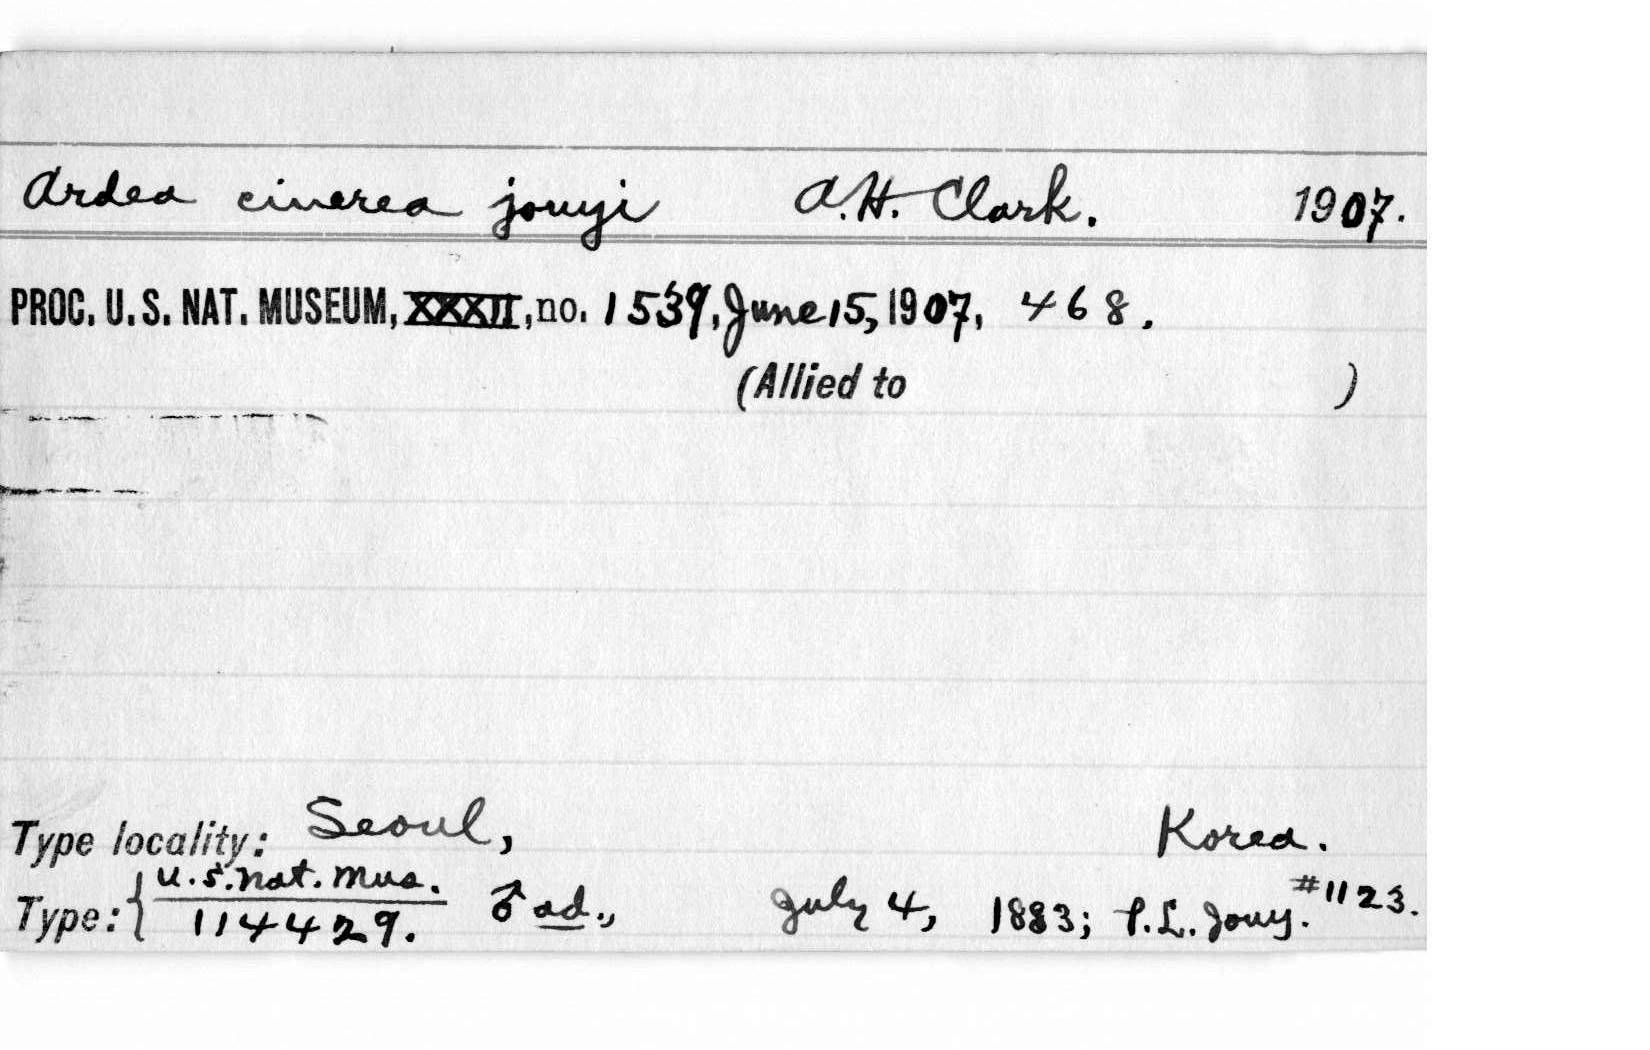 Ardea cinerea jouyi A.H. Clark. 1907.
PROC. U.S. NAT. MUSEUM, XXXII, no. 1539, June 15, 1907, 468.
(Allied to )
Type locality: Seoul, Korea.
Type: { U.S. Nat. Mus. 114429. ♂ ad., July 4, 1883; P.L. Jouy. #1123.